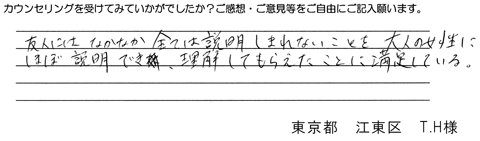 カウンセリングを受けてみていかがでしたか？ご感想・ご意見等をご自由にご記入願います。
友人にはなかなか全ては説明しきれないことを大人の女性に
ほぼ説明でき、理解してもらえたことに満足している。
東京都　江東区　T.H様